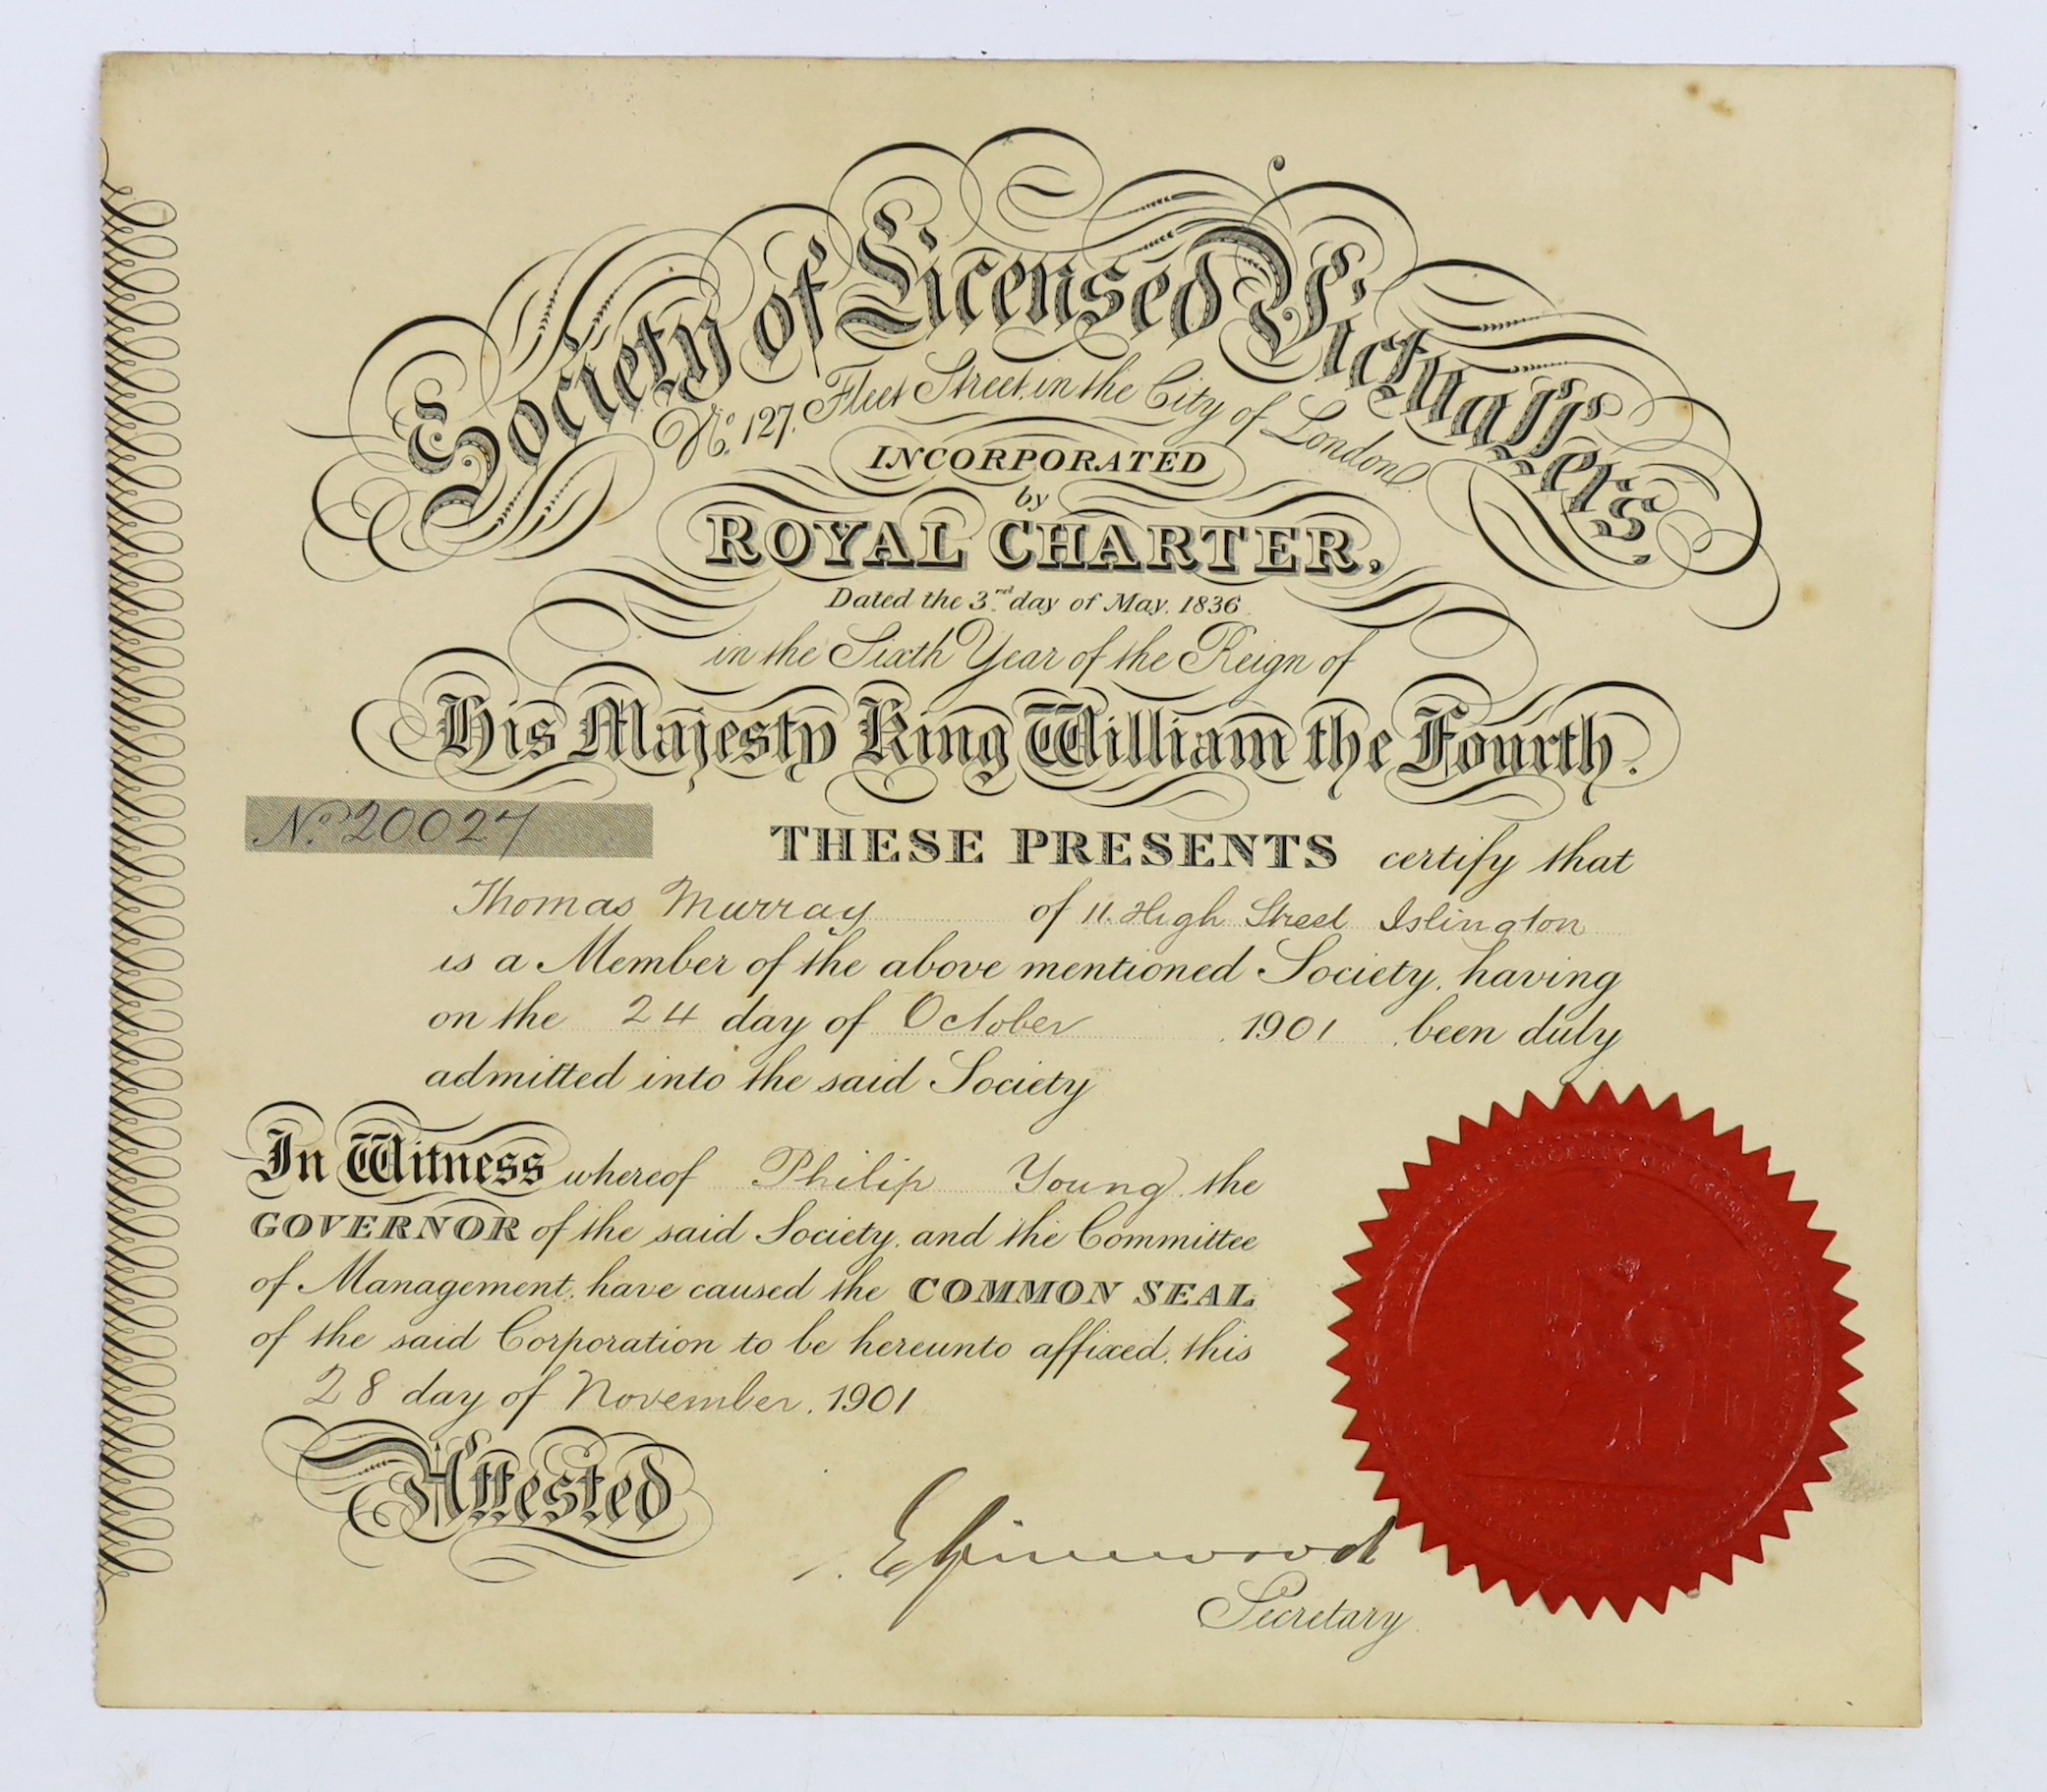 Society of Licensed Victuallers.
No. 127. Fleet Street, in the City of London.
INCORPORATED
by
ROYAL CHARTER,
Dated the 3rd day of May, 1836
in the Sixth Year of the Reign of
His Majesty King William the Fourth.
No. 20027
THESE PRESENTS certify that
Thomas Murray of 11. High Street Islington
is a Member of the above mentioned Society, having
on the 24 day of October 1901 been duly
admitted into the said Society
In Witness whereof Philip Young, the
GOVERNOR of the said Society, and the Committee
of Management, have caused the COMMON SEAL
of the said Corporation to be hereunto affixed, this
28 day of November, 1901
Attested
Secretary.
SOCIETY OF